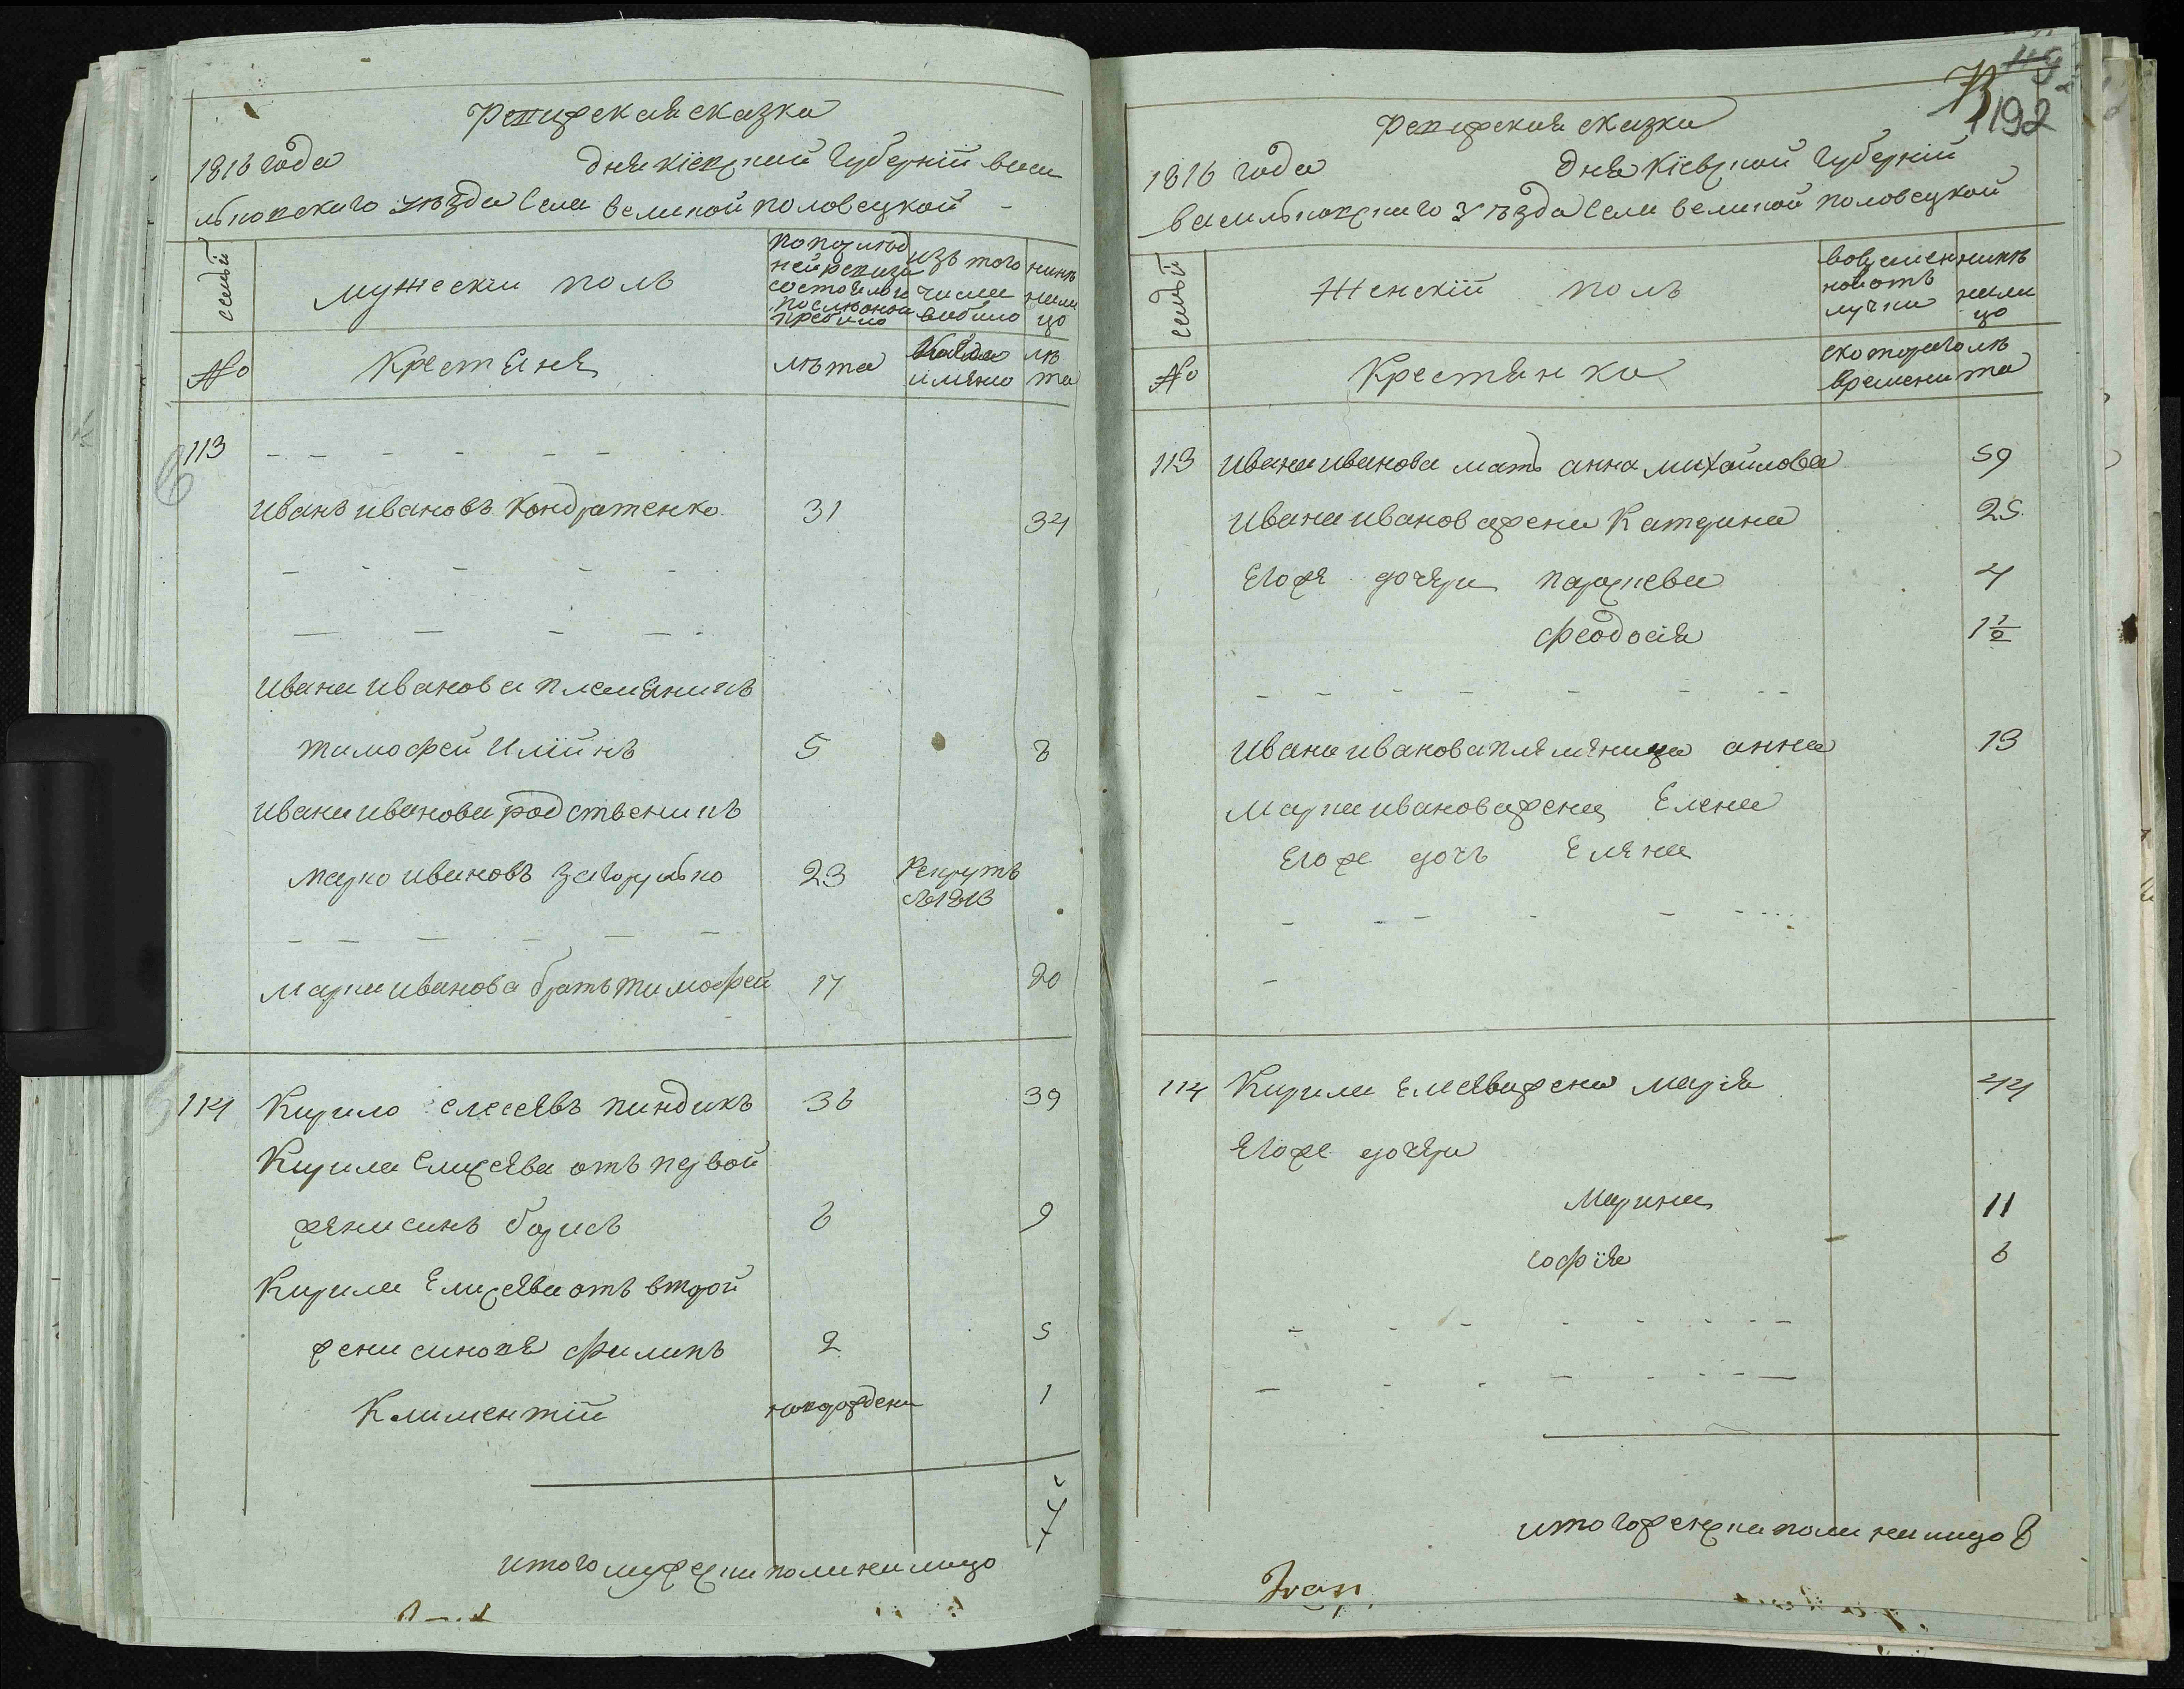 Ревизская сказка
1816 года дня Кіевской Губерніи васи
льковского уезда Села великой половецкой
семьи
мужески полъ
по последней ревизи состояло и после оной прибило
изъ того числа вибило
нине на лицо
№
Крестяня
лѣта
когда имяно
лѣта
113
Иванъ ивановъ Кондратенко 31 34
Ивана иванова племяникъ
тимофей Илїинъ 5 8
Ивана иванова родственикъ
марко ивановъ загорулько 23 Рекрутъ
съ1813
Марка иванова братъ тимофей 17 20
114 Кирило елесеявъ пиндикъ 36 39
Кирила Елисеява отъ первой
жени синъ борисъ 6 9
Кирила Елисеява отъ второй
жени синовя филипъ 2 5
Климентїи новорожденъ 1
7
итого мужеска пола на лицо
192
Ревизская сказка
1816 года дня Кіевской Губерніи
васильковского уѣзда Села великой половецкой
семьи
Женскій полъ
во временной отълучки
нине на лицо
№
Крестянки
с котораго времени
лѣта
113 Ивана иванова мать анна михайлова 59
Ивана иванова жена Катерина 25
Его жя дочяри параскева 4
феодосія 1½
Ивана иванова плямяница анна 13
Марка иванова жена Елена
Его же дочъ Еляна
114 Кирила Елесява жена марія 44
Яго же дочяри
Марина 11
софїя 6
итого женска пола на лицо 8
Jvan